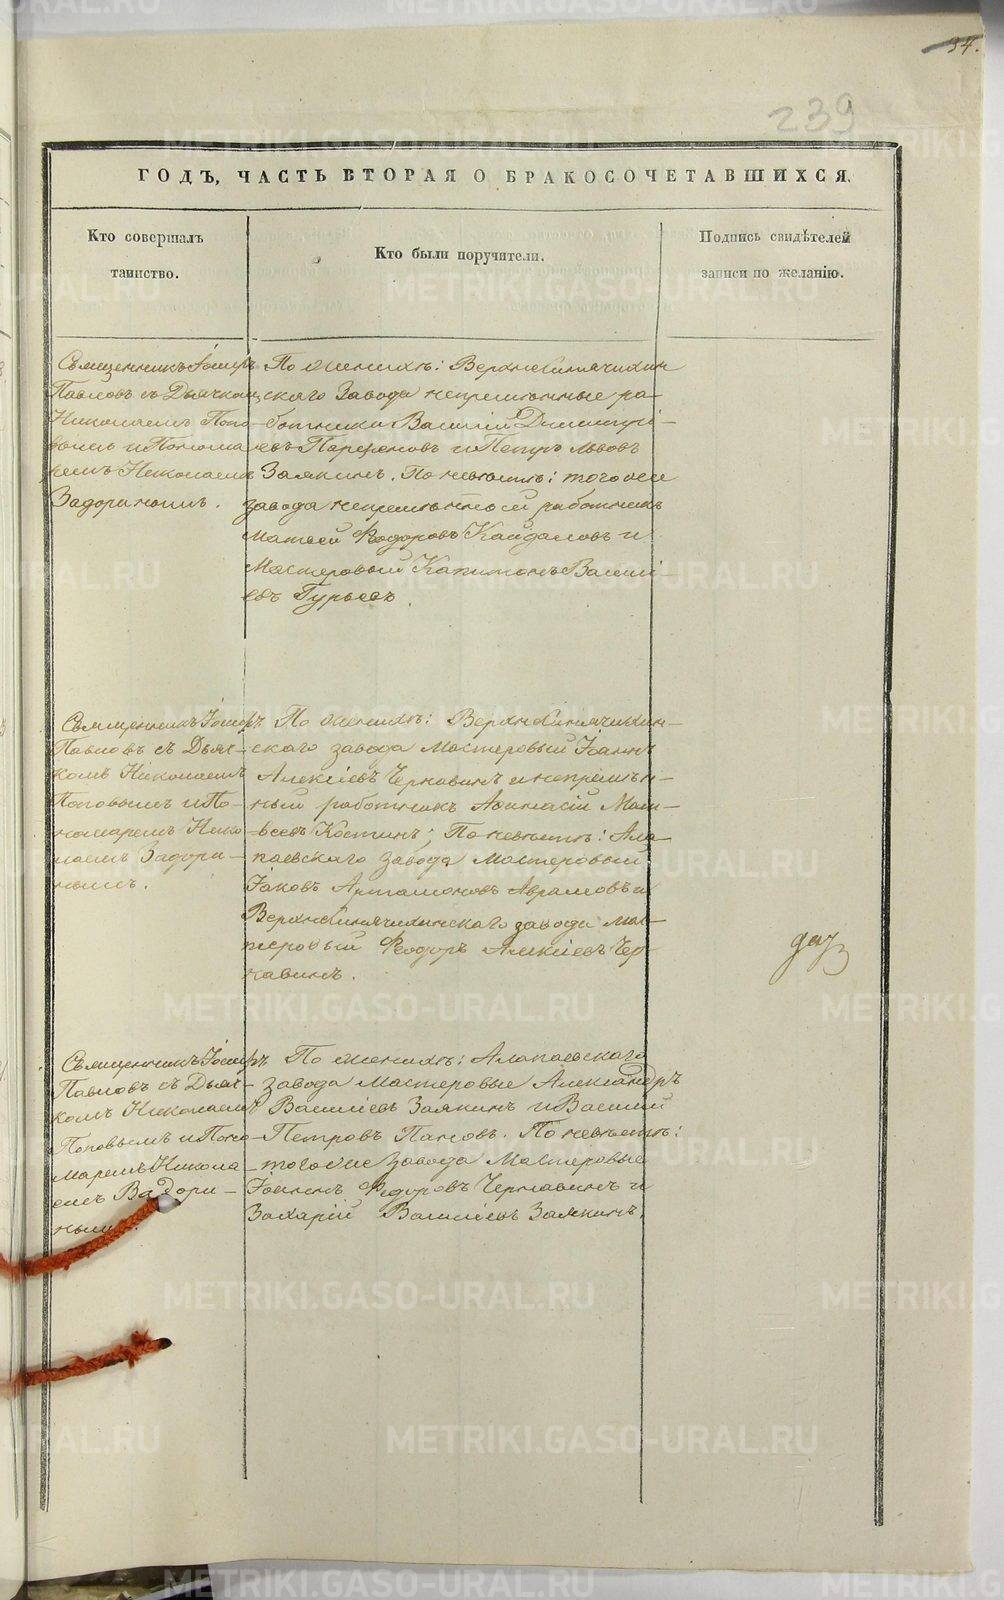 34.
239
ГОДЪ, ЧАСТЬ ВТОРАЯ О БРАКОСОЧЕТАВШИХСЯ.
Кто совершалъ
таинство.
Кто были поручители.
Подпись свидѣтелей
записи по желанію.
Священникъ Іосифъ
Павловъ съ Дьячком
Николаемъ Попо-
вымъ и Понома
ремъ Николаемъ
Задоринымъ.
По женихѣ: Верхнесинячихин
скаго Завода непремѣнные ра-
ботники Василій Димитрі-
евъ Парфеновъ и Петръ Львовъ
Заякинъ. По невѣстѣ: того же
завода непремѣнной работникъ
Матвей Федоровъ Кайдаловъ и
Мастеровый Капитонъ Василі-
евъ Гурьевъ.
Священникъ Іосифъ
Павловъ съ Дьяч-
комъ Николаемъ
Поповымъ и По-
номаремъ Нико
лаемъ Задори-
нымъ.
По женихѣ: Верхнесинячихин-
скаго завода Мастеровый Іоаннъ
Алексіевъ Чернавинъ и непремѣн-
ный работникъ Афанасій Мат-
вѣевъ Костинъ; По невѣстѣ: Ала-
паевскаго завода Мастеровый
Іаковъ Артамоновъ Аврамовъ и
Верхнесинячихинскаго завода Мас-
теровый Феодоръ Алексіевъ Чер-
навинъ.
Священникъ Іосифъ
Павловъ съ Дьяч-
комъ Николаемъ
Поповымъ и Поно-
маремъ Никола
емъ Задори-
нымъ.
По женихѣ: Алапаевскаго
завода Мастеровые Александръ
Василіевъ Заякинъ и Василій
Петровъ Пановъ. По невѣстѣ:
того же завода Мастеровые
Іоаннъ Федоровъ Чернавинъ и
Захарій Василіевъ Заякинъ.
METRIKI.GASO-URAL.RU